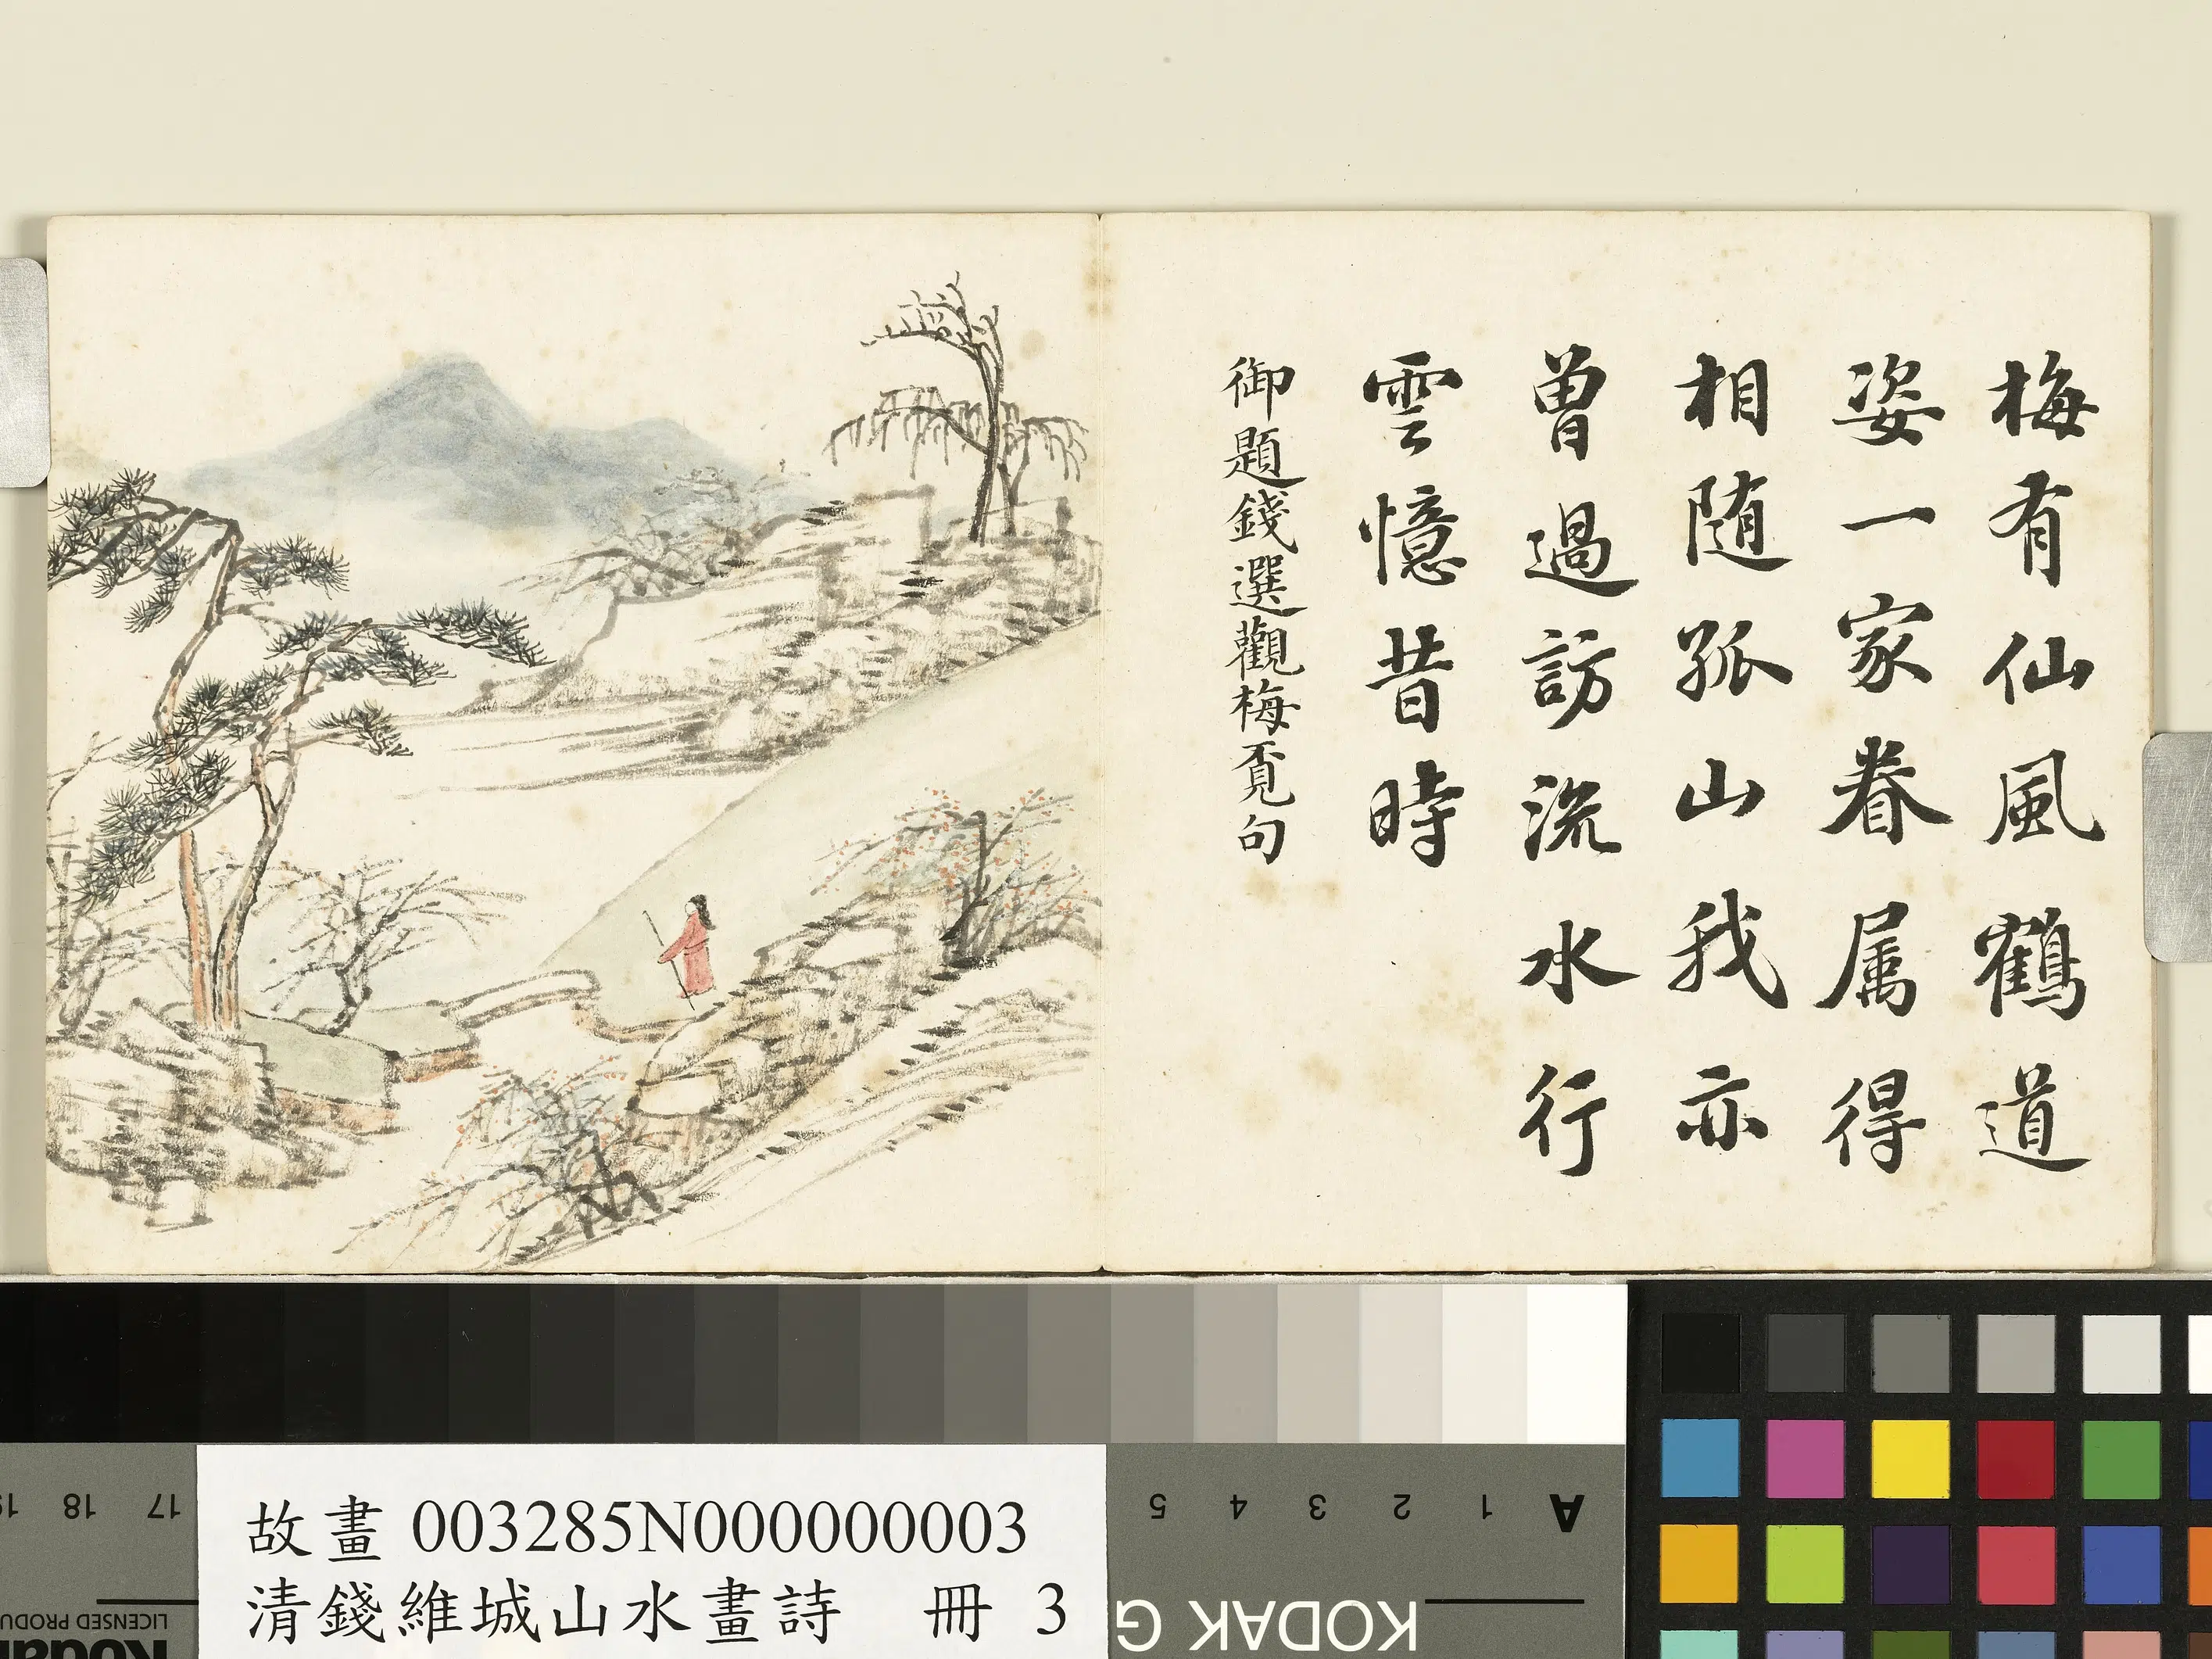 梅有仙風鶴道
姿一家眷属得
相随孤山我亦
曾過訪流水行
雲憶昔時
御題錢選觀梅覔句
17
18
19
5
4
3
2
1
A
KODAK G
LICENSED PRODU
Kodak
故畫 003285N000000003
清錢維城山水畫詩 冊 3